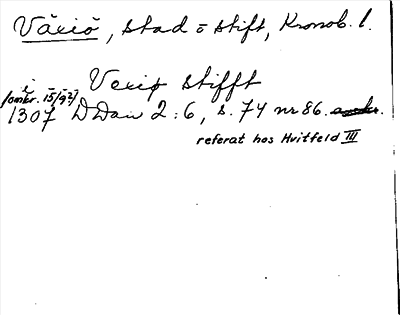 Växiö, stad o stift, Kronob. l.
i Veriø stifft
[omkr. 15/9?]
1307 DDan 2:6, s. 74 nr 86.
referat hos Hvitfeld III